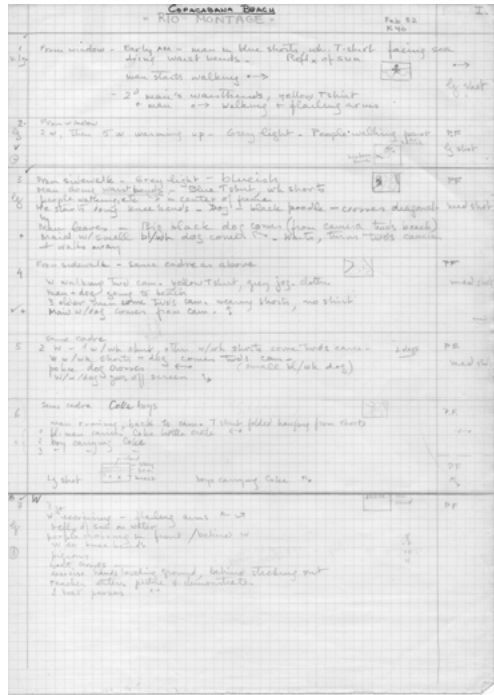 COPACABANA BEACH
"RIO" MONTAGE I.
Feb 82
K46
1 From window - Early AM - man in blue shorts, wh. T-shirt facing sea
doing waist bends. Reflx of sun
man starts walking
lg shot
- 2° man's waistbends, yellow T shirt
+ man walking + flashing arms
2. From window
2 w, then 5 w warming up - Grey light - People walking past PF
lg shot
3 From sidewalk - Grey light - blueish PF
Man doing waist bends - Blue T shirt, wh shorts
people walking, etc in center of frame
He starts knee bends - Dog - black poodle - crosses diagonally med shot
Man leaves - Big black dog comes (from camera twd's beach)
+ Maid w/small bl/wh dog comes white, turns twd's camera
+ walks away
4 From sidewalk - same cadre as above PF
W walking twd cam. yellow T shirt, grey jog. clothes med shot
man + dog going to beach
2 older men come twd's cam. wearing shorts, no shirt
Maid w/dog comes from cam.
5 same cadre PF
2 W - 1 w/wh shirt, other w/wh shorts come twd's came. 2 dogs
W w/wh shorts + dog comes twd's cam. med shot
dog crosses (small bl/wh dog)
W/w/dog goes off screen
6 Same cadre Coke boys PF
man running, back to cam. T shirt folded hanging from shorts
man carries Coke bottle crate
boy carrying Coke
lg shot boys carrying Coke PF
7 W PF
W exercising - flashing arms
reflx of sun on water
people crossing in front / behind W
W do knee bends
pigeons
hands touching ground, behind sticking out
teacher enters picture + demonstrates
2 boat passes